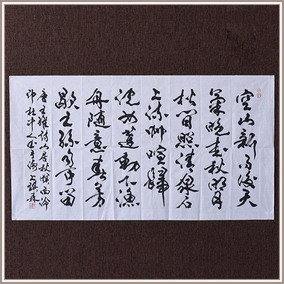 空山新雨後天
氣晚來秋明月
松間照清泉石
上流竹喧歸
浣女蓮動下漁
舟隨意春芳
歇王孫自可留
唐王維詩山居秋暝